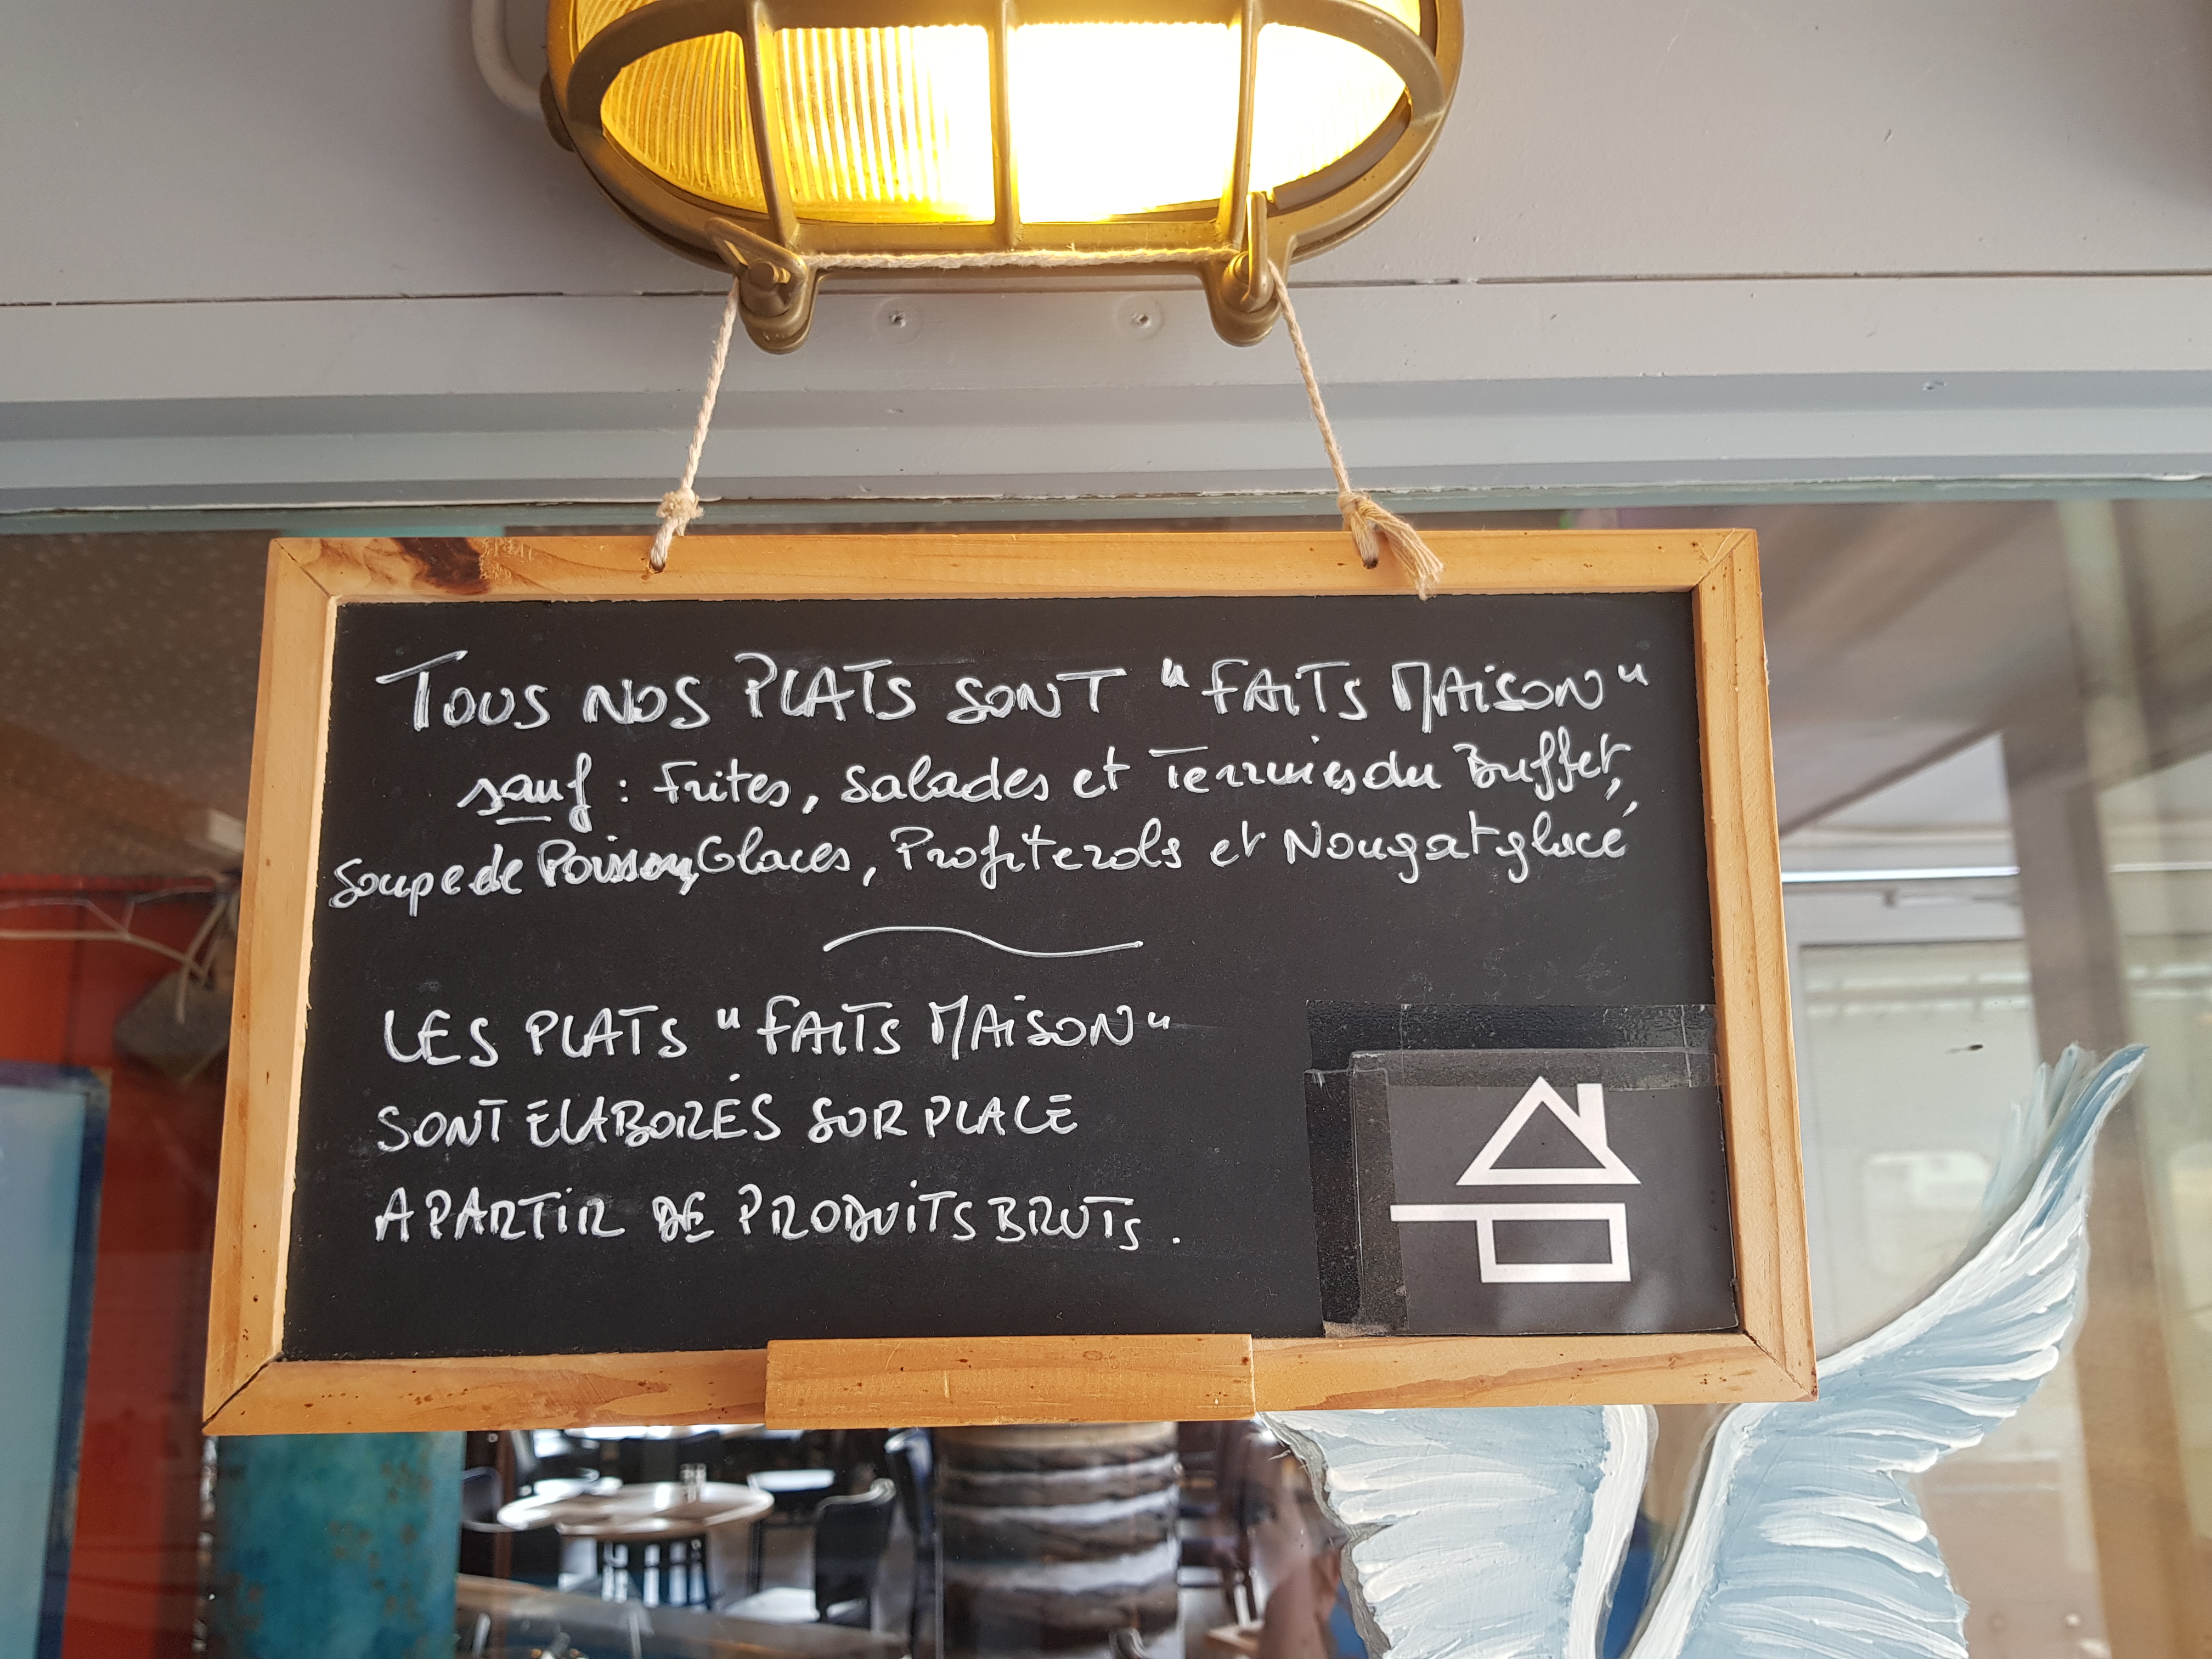 TOUS NOS PLATS SONT "FAITS MAISON"
sauf : Frites, Salades et Terrines du Buffet,
Soupe de Poisson, Glaces, Profiterols et Nougat glacé
LES PLATS "FAITS MAISON"
SONT ELABORÉS SUR PLACE
A PARTIR DE PRODUITS BRUTS.